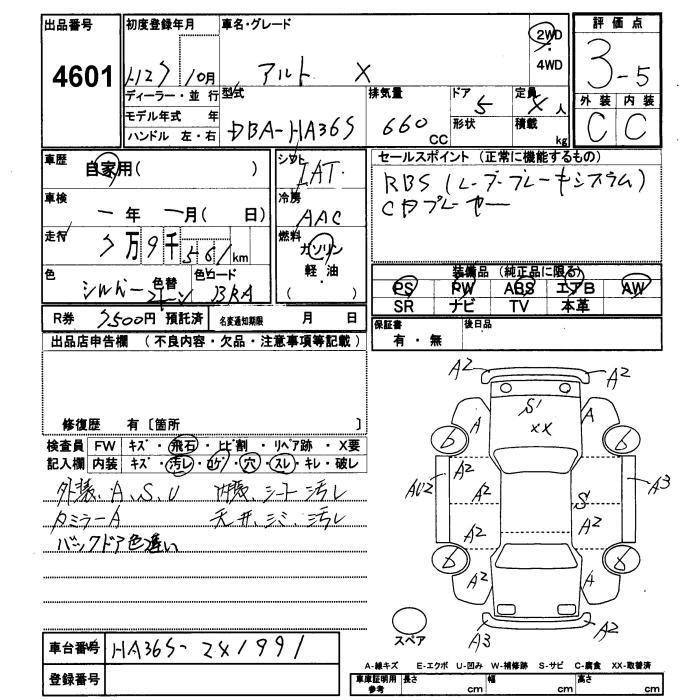 出品番号 初度登録年月 車名・グレード 評価点
4601 H27 10月 アルト X 2WD 3-5
4WD
ディーラー・並行 型式 排気量 ドア 定員 外装 内装
モデル年式 年 DBA-HA36S 660 CC 5 4人 C C
ハンドル 左・右 形状 積載 kg
車歴 自家用( ) シフト IAT セールスポイント (正常に機能するもの)
車検 一年 一月( 日) 冷房 AAC RBS (レーダーブレーキシステム)
CDプレーヤー
走行 7万9千561km 燃料 ガソリン
軽・油
( )
色 シルバー 色替 2トーン 色コード BRA
装備品 (純正品に限る)
PS PW ABS エアB AW
SR ナビ TV 本革
R券 7500円 預託済 名変通知期限 月 日
保証書 後日品
有・無
出品店申告欄 (不良内容・欠品・注意事項等記載)
修復歴 有〔箇所 〕
検査員 FW キズ・飛石・ヒビ割・リペア跡・X要
記入欄 内装 キズ・汚レ・コゲ・穴・スレ・キレ・破レ
外装、A、S、U 内装、シート汚レ
ミラーA 天井、シミ、汚レ
バックドア色違い
A2 A2
S
XX
A A
6 6
A2 A2
AU2 A3
S
A2 A2
6 6
A2 A
A3 A2
スペア
車台番号 HA36S-241991
登録番号
A-線キズ E-エクボ U-凹み W-補修跡 S-サビ C-腐食 XX-取替済
車庫証明用 長さ 幅 高さ
参考 cm cm cm